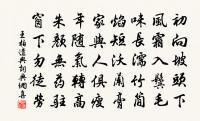 初向坡頭下
風霜入鬢毛
味長濡竹簡
焰短沃蘭膏
家與人俱瘦
年隨氣高
朱顏無藥駐
窗下勿徒勞
王柏遣興詞典網喜